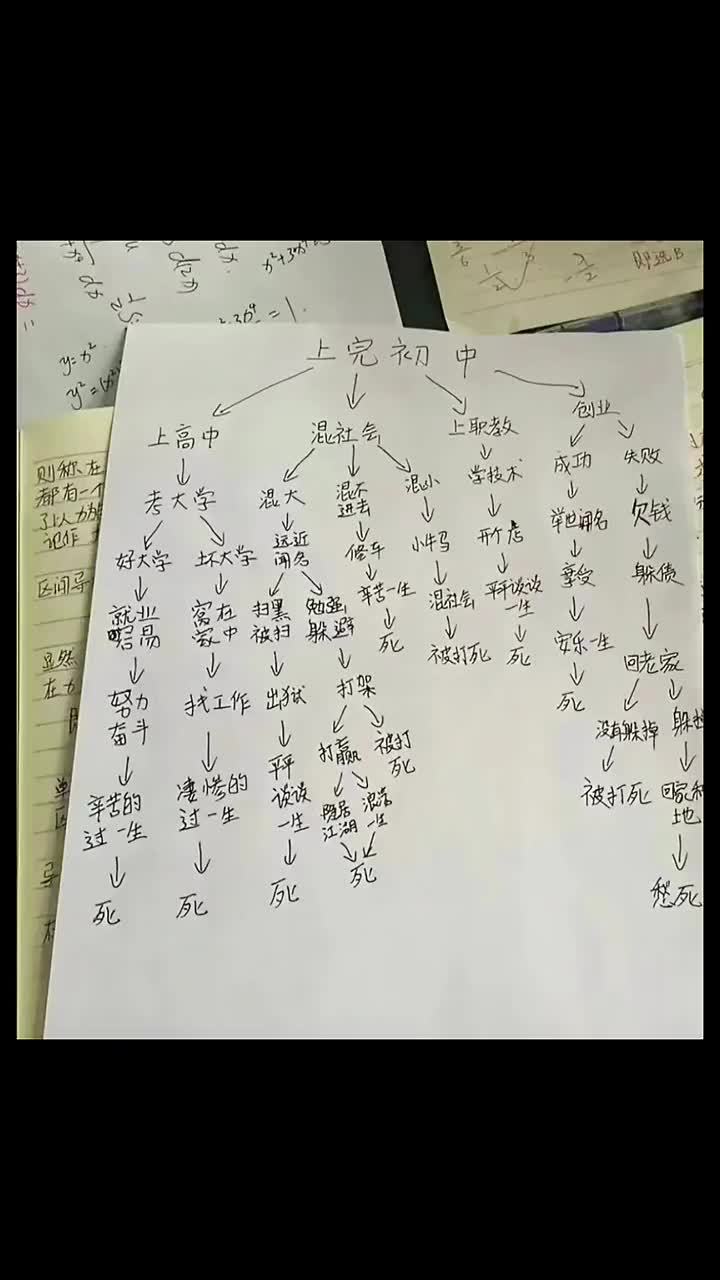 上完初中
上高中
混社会
上职教
创业
考大学
混大
混不
进去
混小
学技术
成功
失败
好大学
坏大学
远近
闻名
修车
小牛马
开个店
举世闻名
欠钱
就业
容易
窝在
家中
扫黑
被扫
勉强
躲避
辛苦一生
混社会
平平谈谈
一生
享受
躲债
死
被打死
死
安乐一生
回老家
努力
奋斗
找工作
出狱
打架
死
没有躲掉
躲掉
辛苦的
过一生
凄惨的
过一生
平平
谈谈
一生
打赢
被打
死
隐居
江湖
浪荡
一生
被打死
回家种
地
死
死
死
死
愁死
y=x²
x²+3x
=1.
dx
dx
则称在
都有一个
记作
区间导
显然
在
则选B